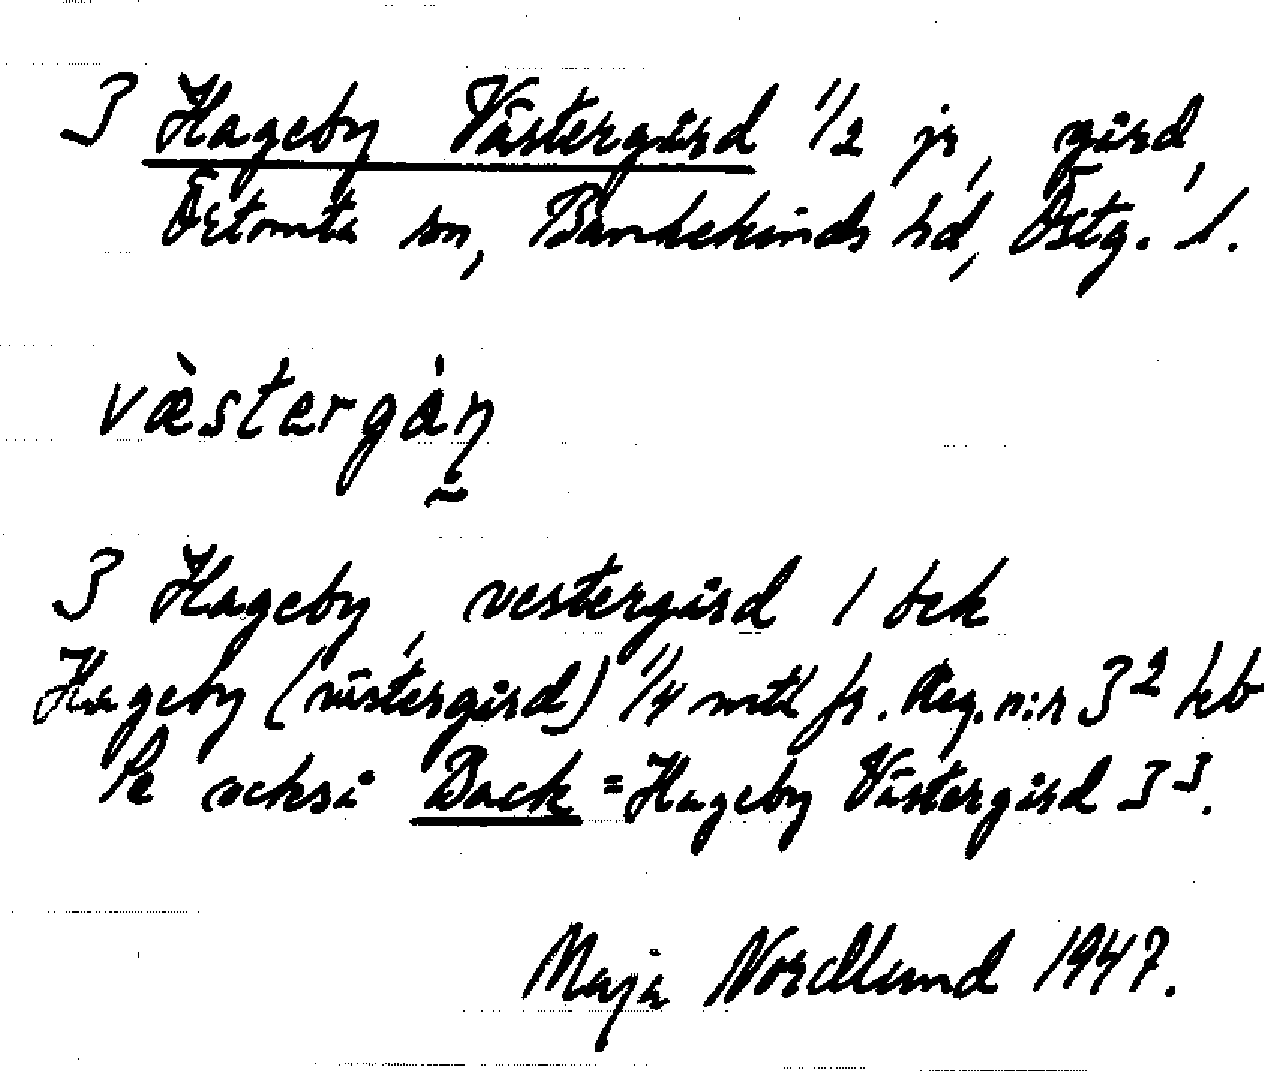 3 Hageby Västergård 1/2 jr, gård,
Örtomta sn, Bankekinds hd, Östg. l.
væ̀stərgàṇ
3 Hageby, vestergård 1 bek
Hageby (västergård) 1/4 mtl fr. Reg. n:r 3² hb
Se också Dack = Hageby Västergård 3³.
Maja Nordlund 1947.